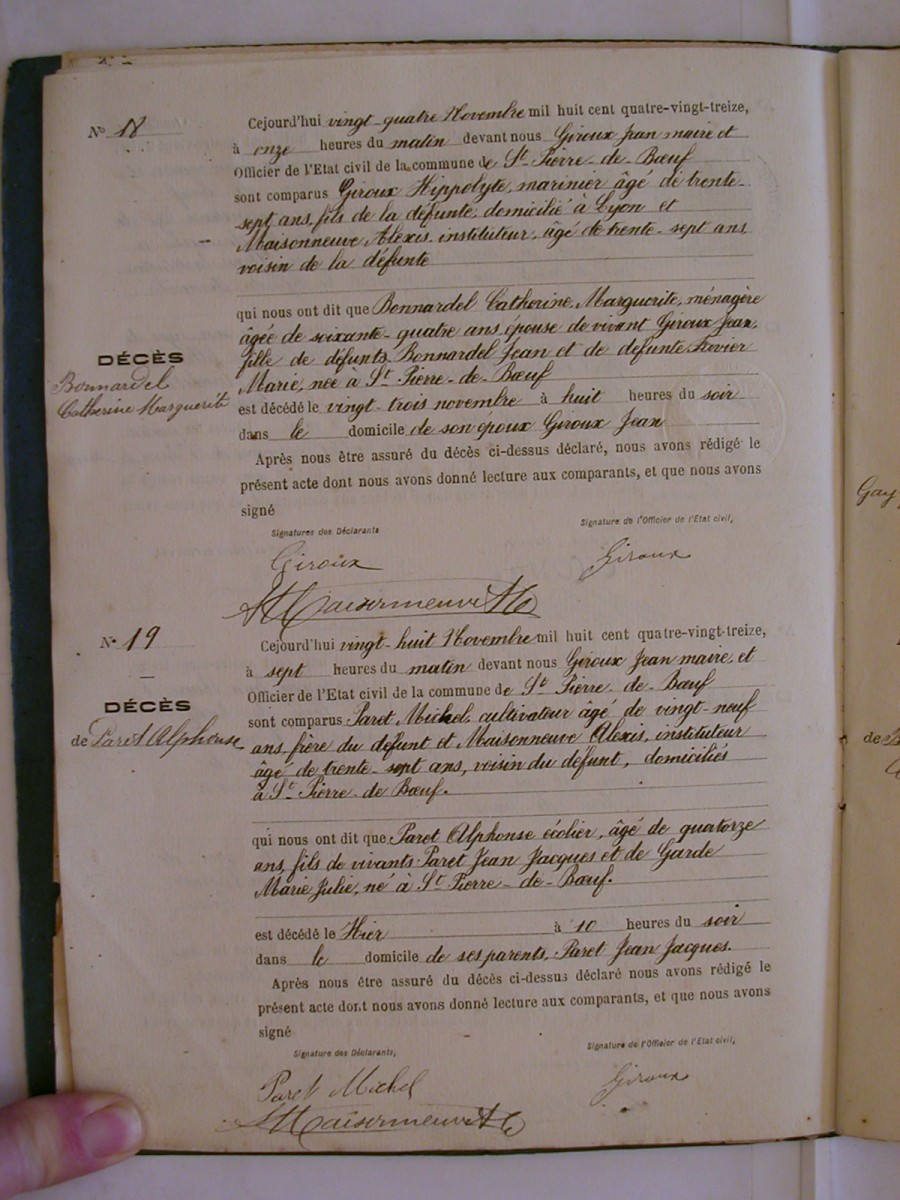 Nº 18
Cejourd'hui vingt-quatre Novembre mil huit cent quatre-vingt-treize,
à onze heures du matin devant nous Giroux Jean maire et
Officier de l'Etat civil de la commune de St Pierre-de-Bœuf
sont comparus Giroux Hippolyte, marinier âgé de trente-
sept ans, fils de la défunte, domicilié à Lyon et
Maisonneuve Alexis, instituteur, âgé de trente-sept ans
voisin de la défunte
qui nous ont dit que Bonnardel Catherine Marguerite, ménagère
âgée de soixante-quatre ans, épouse de vivant Giroux Jean,
fille de défunts Bonnardel Jean et de défunte
Marie, née à St Pierre-de-Bœuf
est décédé le vingt-trois novembre à huit heures du soir
dans le domicile de son époux Giroux Jean
Après nous être assuré du décès ci-dessus déclaré, nous avons rédigé le
présent acte dont nous avons donné lecture aux comparants, et que nous avons
signé
DÉCÈS
Bonnardel
Catherine Marguerite
Signatures des Déclarants
Signature de l'Officier de l'Etat civil,
Giroux
Giroux
Maisonneuve
Nº 19
DÉCÈS
de Paret Alphonse
Cejourd'hui vingt-huit Novembre mil huit cent quatre-vingt-treize,
à sept heures du matin devant nous Giroux Jean maire et
Officier de l'Etat civil de la commune de St Pierre-de-Bœuf
sont comparus Paret Michel, cultivateur âgé de vingt-neuf
ans, frère du défunt et Maisonneuve Alexis, instituteur
âgé de trente-sept ans, voisin du défunt, domiciliés
à St Pierre-de Bœuf.
qui nous ont dit que Paret Alphonse écolier, âgé de quatorze
ans, fils de vivants Paret Jean Jacques et de Garde
Marie Julie, né à St Pierre-de-Bœuf.
est décédé le Hier à 10 heures du soir
dans le domicile de ses parents, Paret Jean Jacques.
Après nous être assuré du décès ci-dessus déclaré nous avons rédigé le
présent acte dont nous avons donné lecture aux comparants, et que nous avons
signé
Signature des Déclarants,
Signature de l'Officier de l'Etat civil,
Paret Michel
Giroux
Maisonneuve
Gay
de